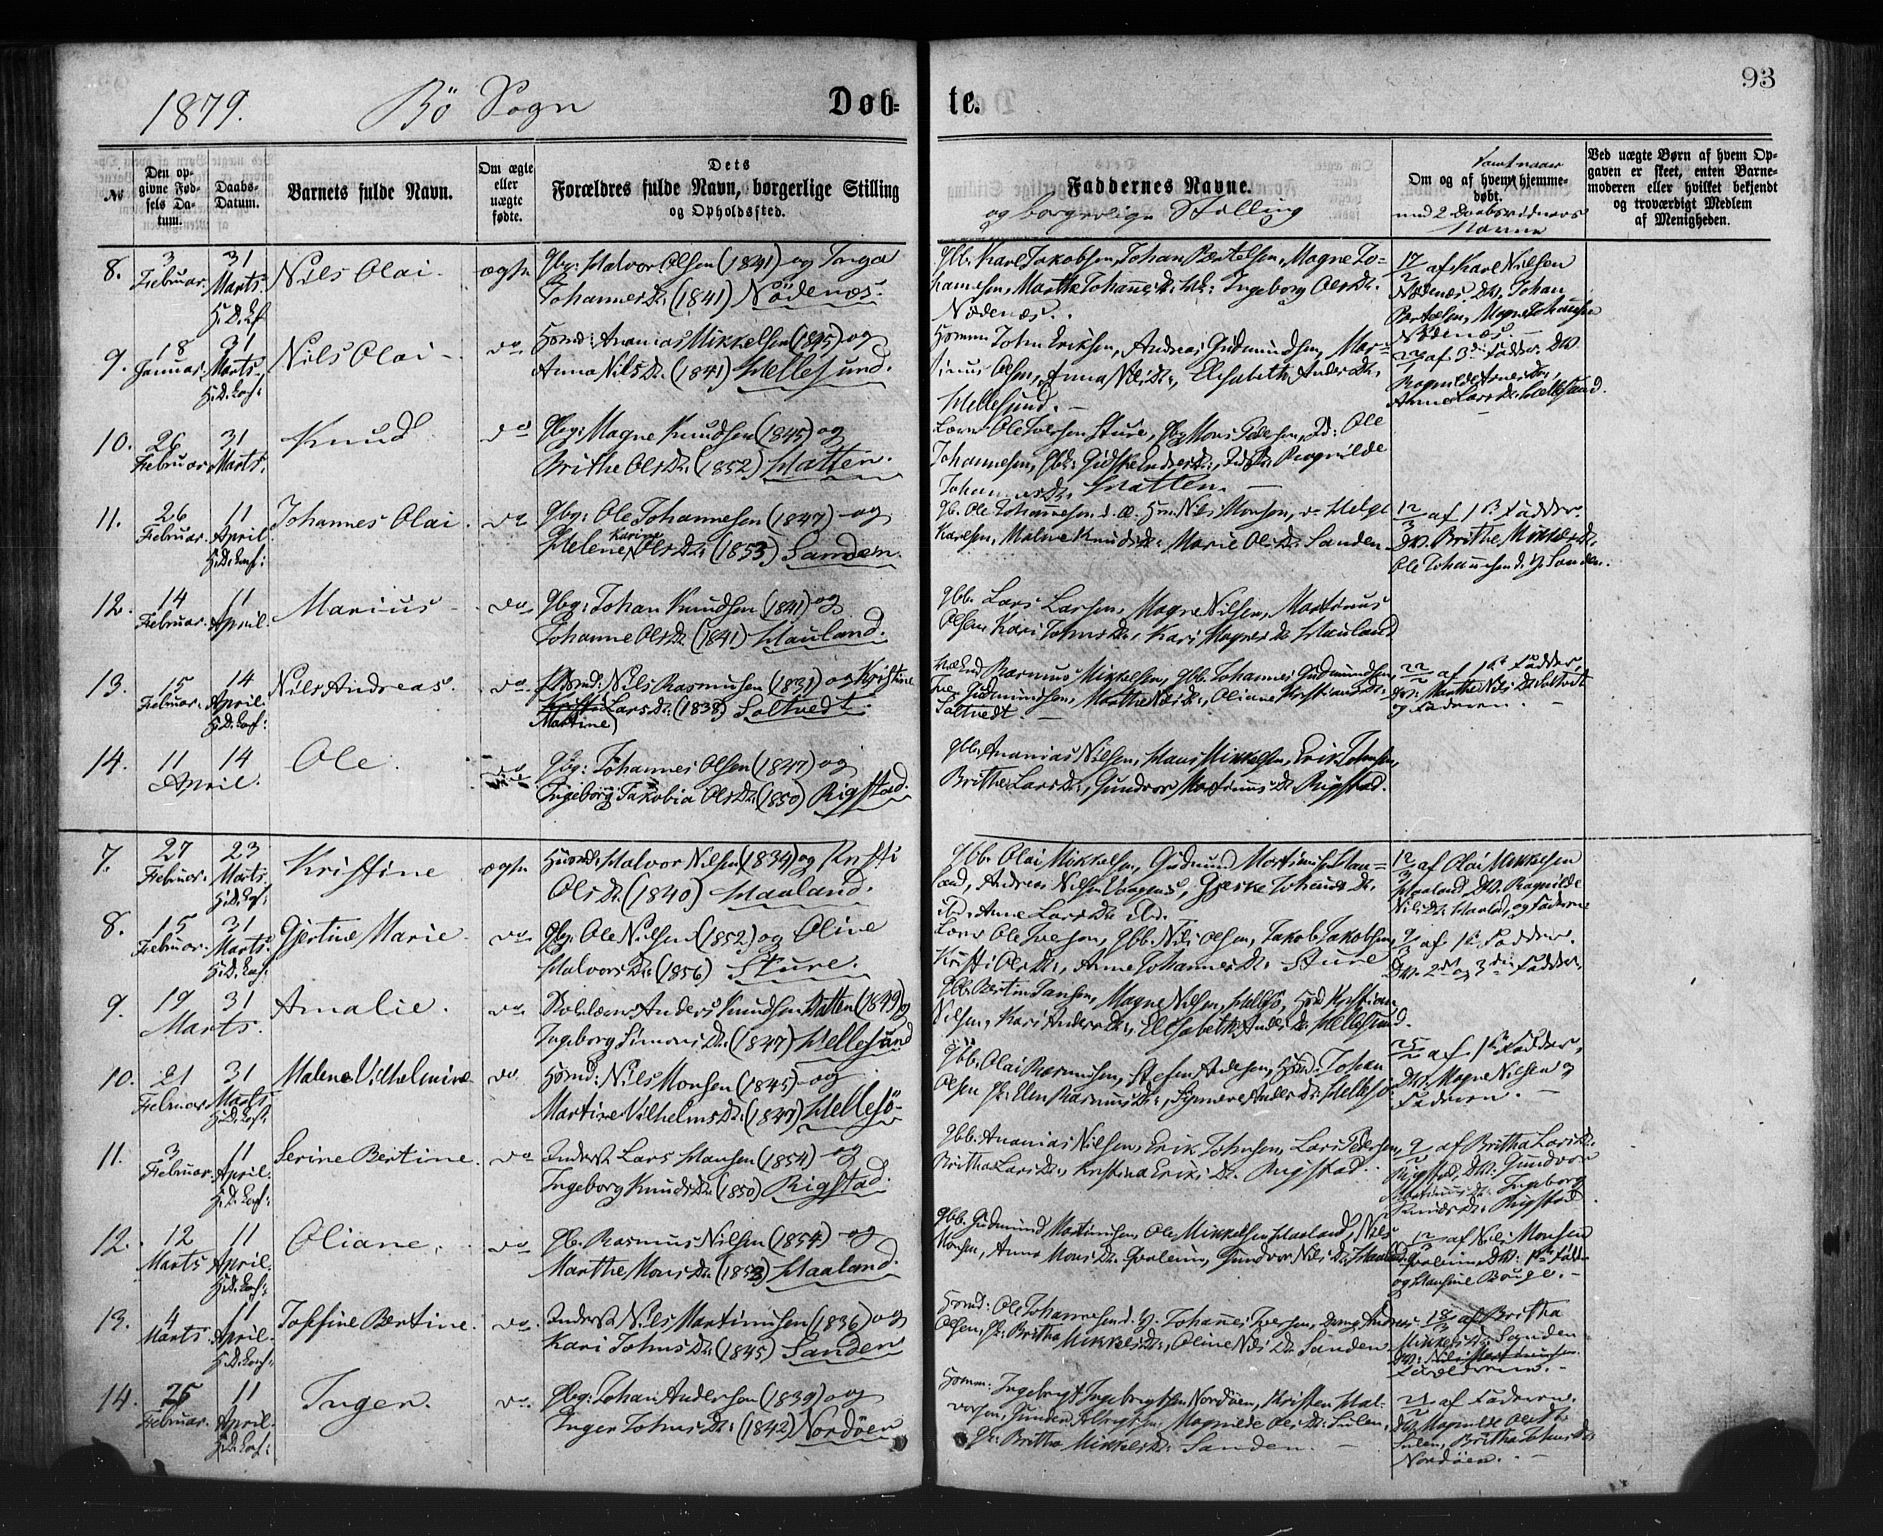 1879. Bö Sogn Døb= te. 93
No
Den op-
givne Fød-
sels Da-
tum.
Daabs-
Datum.
Barnets fulde Navn.
Om ægte
eller
uægte
fødte.
Dets
Forældres fulde Navn, borgerlige Stilling
og Opholdssted.
Faddernes Navne.
og borgerlige Stilling
samt naar
Om og af hvem hjemme-
døbt.
med 2 Daabsvidners
Navne
Ved uægte Børn af hvem Op-
gaven er skeet, enten Barne-
moderen eller hvilket bekjendt
og troværdigt Medlem
af Menigheden.
8. 3 Februar. 31 Marts. Nils Olai. ægte
Gbg: Halvor Olsen (1841) og Inga
Johannes Dr. (1841) Nödenæs.
Gbb. Karl Jakobsen, Johan Bertelsen, Magne Jo-
hannesen, Marthe Johannes Dr. Ingeborg Ols Dr.
Nödenæs.
17/2 af Karl Nilsen
Nödenæs. DV. Johan
Bertelsen, Magne Johannesen
Nödenæs
9. 18 Januar. 31 Marts. Nils Olai – do
Husmd: Ananias Mikkelsen (1845) og
Anna Nils Dr. (1841) Hellesund.
Husmm John Eriksen, Andreas Gudmundsen, Mar-
tinus Olsen, Anna Nils Dr., Elisabeth Anders Dr.
Hellesund. –
af 3die Fadder. DV.
Ragnilde Arnes Dr.,
Anne Lars Dr. Hellesund.
10. 26 Februar. 31 Marts. Knud do
Gbg: Magne Knudsen (1845) og
Brithe Ols Dr. (1852) Hatten.
Lærer Ole Iversen Sture, Gbg Mons Pedersen, Ole
Johannesen, Gidske Endres Dr., Ragnilde
Johannes Dr. Hatten. –
11. 26 Februar. 11 April. Johannes Olai. do
Gbg: Ole Johannesen (1847) og
Helene Karine Ols Dr. (1853) Sanden.
Gb. Ole Johannesen d. Æ. Nils Monsen, Helge
Karlsen, Malene Knuds Dr. Marie Ols Dr. Sanden
12/3 af 1ste Fadder.
DV. Brithe Mikkels Dr.
Ole Johannesen d. y. Sanden.
12. 14 Februar. 11 April. Marius do
Gbg: Johan Knudsen (1841) og
Johanne Ols Dr. (1841) Hauland.
Gbb. Lars Larsen, Magne Nilsen, Martinus
Olsen, Kari Johns Dr., Kari Magnes Dr. Hauland
13. 15 Februar. 14 April. Nils Andreas. do
Husmd: Nils Rasmusen (1831) og Kristine
Martine Lars Dr. (1838) Soltvedt.
Rasmus Mikkelsen, Gbb. Johannes Gudmundsen,
Gudmundsen, Marthe Nils Dr., Oliane Kristians Dr.
Soltvedt –
22/2 af 1ste Fadder,
DV: Marthe Nils Dr. Soltvedt
og Faderen. –
14. 11 April. 14 Ole. do
Gbg: Johannes Olsen (1847) og
Ingeborg Jakobia Ols Dr. (1850) Rigstad.
Gbb. Ananias Nilsen, Hans Mikkelsen, Erik Johnsen,
Brithe Lars Dr., Gundvor Martinus Dr. Rigstad.
7. 27 Februar. 23 Marts. Kristine ægte
Husmd: Halvor Nilsen (1834) og Kristi
Ols Dr. (1840) Haaland.
Gbb. Olai Mikkelsen, Gudmund Martinusen Haa-
land, Andreas Nilsen Vaagenes, Gjeske Johannes Dr.
ibd., Anne Lars Dr. ibd.
12/3 af Olai Mikkelsen
Haaland. DV. Ragnilde
Nils Dr. Haaland, og Faderen
8. 15 Februar. 31 Marts. Gjertine Marie do
Gbg. Ole Nilsen (1852) og Oline
Halvors Dr. (1856) Sture.
Lærer Ole Iversen, Gbb. Nils Olsen, Jakob Jakobsen,
Kristi Ols Dr., Anne Johannes Dr. Sture
af 1ste Fadder.
DV. 2den og 3die Fadder.
9. 19 Marts. 31 Amalie. do
Skolelærer Anders Knudsen Hatten (1849) og
Ingeborg Simons Dr. (1847) Hellesund
Gbb. Bertin Jansen, Magne Nilsen, Hellesö, Husmd Kristian
Nilsen, Kari Anders Dr., Elisabeth Anders Dr. Hellesund.
10. 21 Februar 31 Marts. Malene Vilhelmine do
Husmd: Nils Monsen (1845) og
Martine Vilhelms Dr. (1847) Hellesö
Gbb. Olai Rasmusen, Stefen Andersen, Husmd. Johan
Olsen, Elen Rasmus Dr., Synneve Anders Dr. Hellesö
25/2 af 1ste Fadder,
DV. Magne Nilsen og
Faderen. –
11. 3 Februar. 11 April. Serine Bertine. do
Inderst Lars Hansen (1854) og
Ingeborg Knuds Dr. (1850) Rigstad.
Gbb. Ananias Nilsen, Erik Johnsen, Lars Pedersen,
Britha Lars Dr., Kristina Eriks Dr. Rigstad.
9/2 af Britha Lars Dr.
Rigstad, DV. Gundvor
Martinus Dr. Ingeborg
Knuds Dr. Rigstad
12. 12 Marts 11 April. Oliane. do
Gb. Rasmus Nilsen (1854) og
Marthe Mons Dr. (1853) Haaland.
Gbb. Gudmund Martinusen, Ole Mikkelsen Haaland, Nils
Monsen, Anna Mons Dr. Gundvor Nils Dr. Haaland
af Nils Monsen
DV. 1ste Fadder
og Hansine Bouge. –
13. 4 Marts 11 April. Josefine Bertine. do
Inderst Nils Martinusen (1836) og
Kari Johns Dr. (1845) Sanden
Husmd: Ole Johannesen d. y. Johannes Iversen, Andreas
Olsen, Britha Mikkels Dr., Oline Nils Dr. Sanden.
af Britha
Mikkels Dr. Sanden
DV. Nils Martinusen
Forældrene. –
14. 25 Februar. 11 April Inger. do
Gbg: Johan Andersen (1839) og
Inger Johns Dr. (1842) Nordöen
Husmm: Ingebrigt Ingebrigtsen Nordöen, Kristen Hal-
vorsen, Gunder Albrigtsen, Magnilde Ols Dr. Sulen,
Britha Mikkels Dr. Sanden. –
af Faderen.
DV. Magnilde Ols Dr.
Sulen, Britha Johns Dr.
Nordöen. –